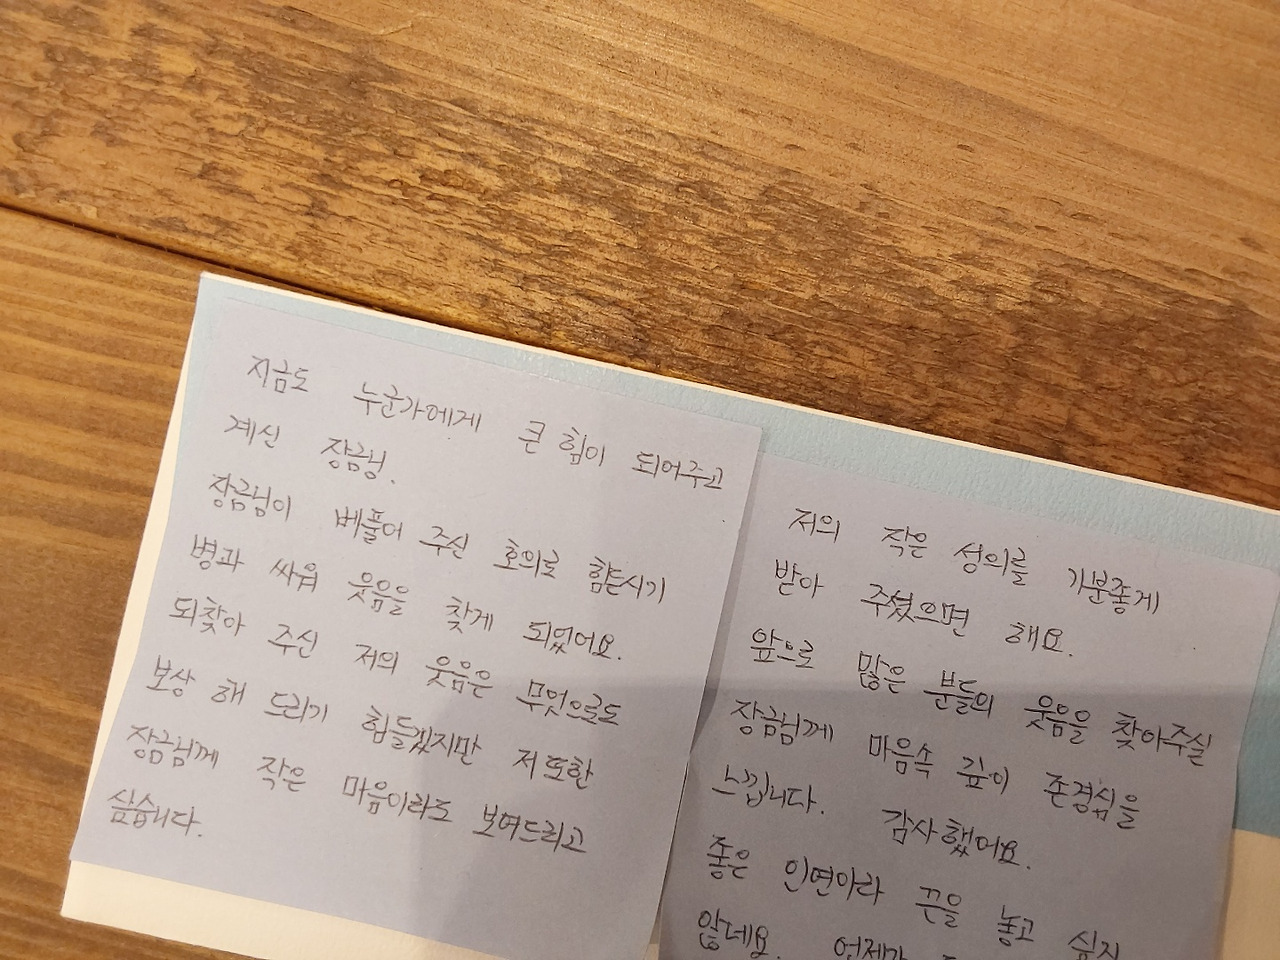 지금도 누군가에게 큰 힘이 되어주고
계신 장금님.
장금님이 베풀어 주신 호의로 힘든시기
병과 싸워 웃음을 찾게 되었어요.
되찾아 주신 저의 웃음은 무엇으로도
보상 해 드리기 힘들겠지만 저또한
장금님께 작은 마음이라도 보여드리고
싶습니다.
저의 작은 성의를 기분좋게
받아 주셨으면 해요.
앞으로 많은 분들의 웃음을 찾아주실
장금님께 마음속 깊이 존경심을
느낍니다. 감사했어요.
좋은 인연이라 끈을 놓고 싶지
않네요. 언제가